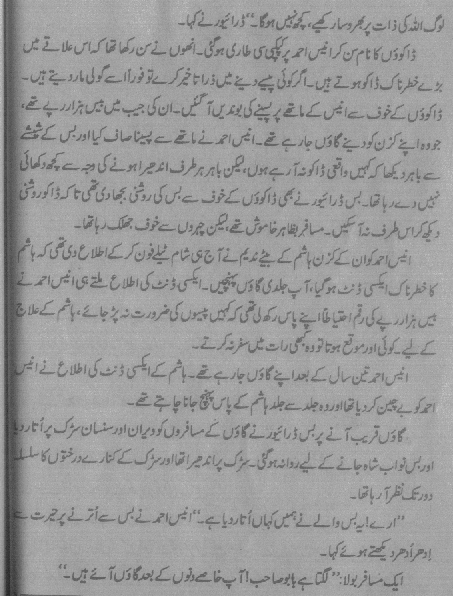 لوگ اللہ کی ذات پر بھروسا رکھیے، کچھ نہیں ہوگا۔“ ڈرائیور نے کہا۔
ڈاکوؤں کا نام سن کر انیس احمد پر کپکپی سی طاری ہوگئی۔ انھوں نے سن رکھا تھا کہ اس علاقے میں
بڑے خطرناک ڈاکو ہوتے ہیں۔ اگر کوئی پیسے دینے میں ذرا تاخیر کرے تو فوراً اسے گولی مار دیتے ہیں۔
ڈاکوؤں کے خوف سے انیس کے ماتھے پر پسینے کی بوندیں آگئیں۔ ان کی جیب میں بیس ہزار روپے تھے،
جو وہ اپنے کزن کو دینے گاؤں جارہے تھے۔ انیس احمد نے ماتھے سے پسینا صاف کیا اور بس کے شیشے
سے باہر دیکھا کہ کہیں واقعی ڈاکو نہ آرہے ہوں، لیکن باہر ہر طرف اندھیرا ہونے کی وجہ سے کچھ دکھائی
نہیں دے رہا تھا۔ بس ڈرائیور نے بھی ڈاکوؤں کے خوف سے بس کی روشنی بجھا دی تھی تاکہ ڈاکو روشنی
دیکھ کر اس طرف نہ آسکیں۔ مسافر بظاہر خاموش تھے، لیکن چہروں سے خوف جھلک رہا تھا۔
انیس احمد کو ان کے کزن ہاشم کے بیٹے ندیم نے آج ہی شام ٹیلے فون کرکے اطلاع دی تھی کہ ہاشم
کا خطرناک ایکسی ڈنٹ ہوگیا، آپ جلدی گاؤں پہنچیں۔ ایکسی ڈنٹ کی اطلاع ملتے ہی انیس احمد نے
بیس ہزار رپے کی رقم احتیاطاً اپنے پاس رکھ لی تھی کہ کہیں پیسوں کی ضرورت نہ پڑجائے، ہاشم کے علاج
کے لیے۔ کوئی اور موقع ہوتا تو وہ کبھی رات میں سفر نہ کرتے۔
انیس احمد تین سال کے بعد اپنے گاؤں جارہے تھے۔ ہاشم کے ایکسی ڈنٹ کی اطلاع نے انیس
احمد کو بے چین کردیا تھا اور وہ جلد سے جلد ہاشم کے پاس پہنچ جانا چاہتے تھے۔
گاؤں قریب آنے پر بس ڈرائیور نے گاؤں کے مسافروں کو ویران اور سنسان سڑک پر اُتار دیا
اور بس نواب شاہ جانے کے لیے روانہ ہوگئی۔ سڑک پر اندھیرا تھا اور سڑک کے کنارے درختوں کا سلسلہ
دور تک نظر آرہا تھا۔
”ارے! یہ بس والے نے ہمیں کہاں اُتار دیا ہے۔“ انیس احمد نے بس سے اُترنے پر حیرت سے
اِدھر اُدھر دیکھتے ہوئے کہا۔
ایک مسافر بولا: ”لگتا ہے بابو صاحب! آپ خاصے دنوں کے بعد گاؤں آئے ہیں۔“